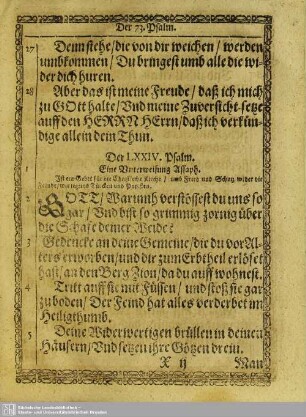 Der 73. Psalm.
27 Denn siehe/die von dir weichen/werden
umbkommen/Du bringest umb alle die wi-
der dich huren.
28 Aber das ist meine Freude/daß ich mich
zu GOtt halte/Und meine Zuversicht setze
auff den HERRN HErrn/daß ich verkün-
dige allein dem Thun.
Der LXXIV. Psalm.
1 Eine Unterweisung Assaph.
Ist ein Gebet für die Christliche Kirche/ umb Hülff und Schutz wider die
Feinde/
2 GOTT/Warumb verstössest du uns so
gar/Und bist so grimmig zornig über
die Schafe deiner Weide?
3 Gedencke an deine Gemeine/die du vor Al-
ters erworben/und dir zum Erbtheil erlöset
hast/an den Berg Zion/da du auff wohnest.
4 Tritt auff sie mit Füssen/und stoß sie gar
zu boden/Der Feind hat alles verderbet im
Heiligthumb.
5 Deine Widerwertigen brüllen in deinen
Häusern/Und setzen ihre Götzen drein.
X ij Man